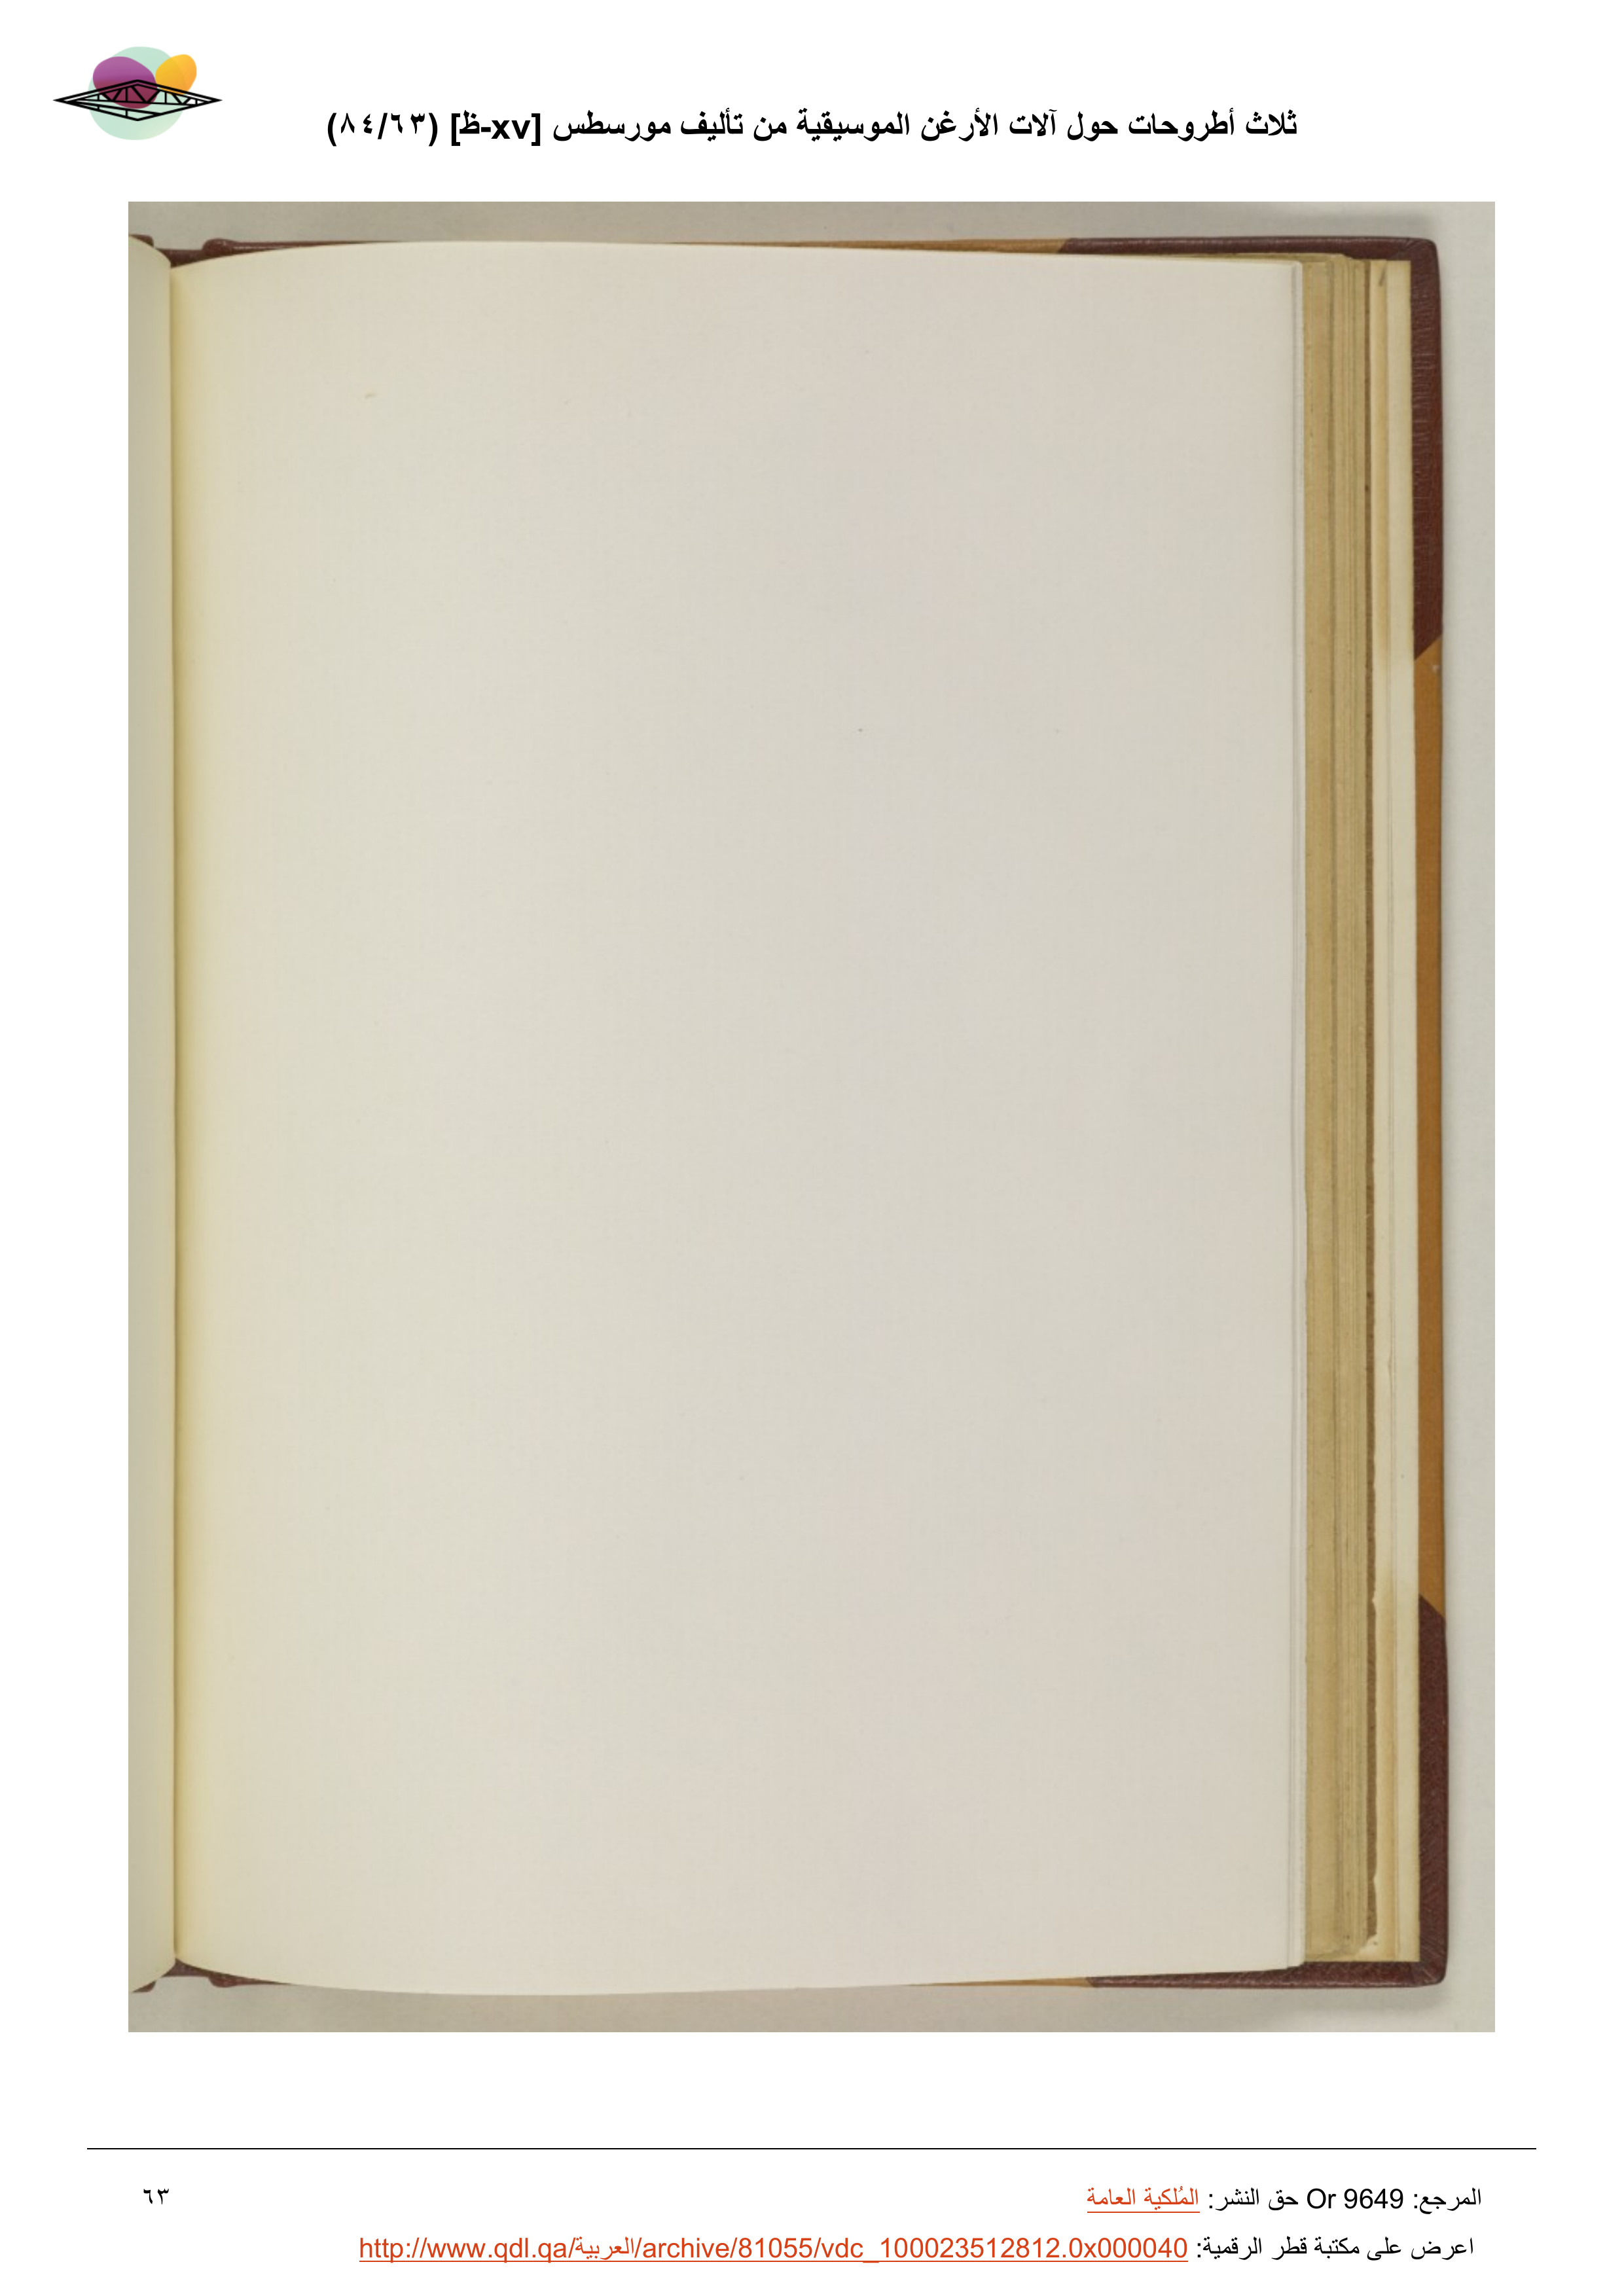 ثلاث أطروحات حول آلات الأرغن الموسيقية من تأليف مورسطس [xv-ظ] (٨٤/٦٣)
المرجع: Or 9649 حق النشر: المُلكية العامة
٦٣
اعرض على مكتبة قطر الرقمية: http://www.qdl.qa/العربية/archive/81055/vdc_100023512812.0x000040